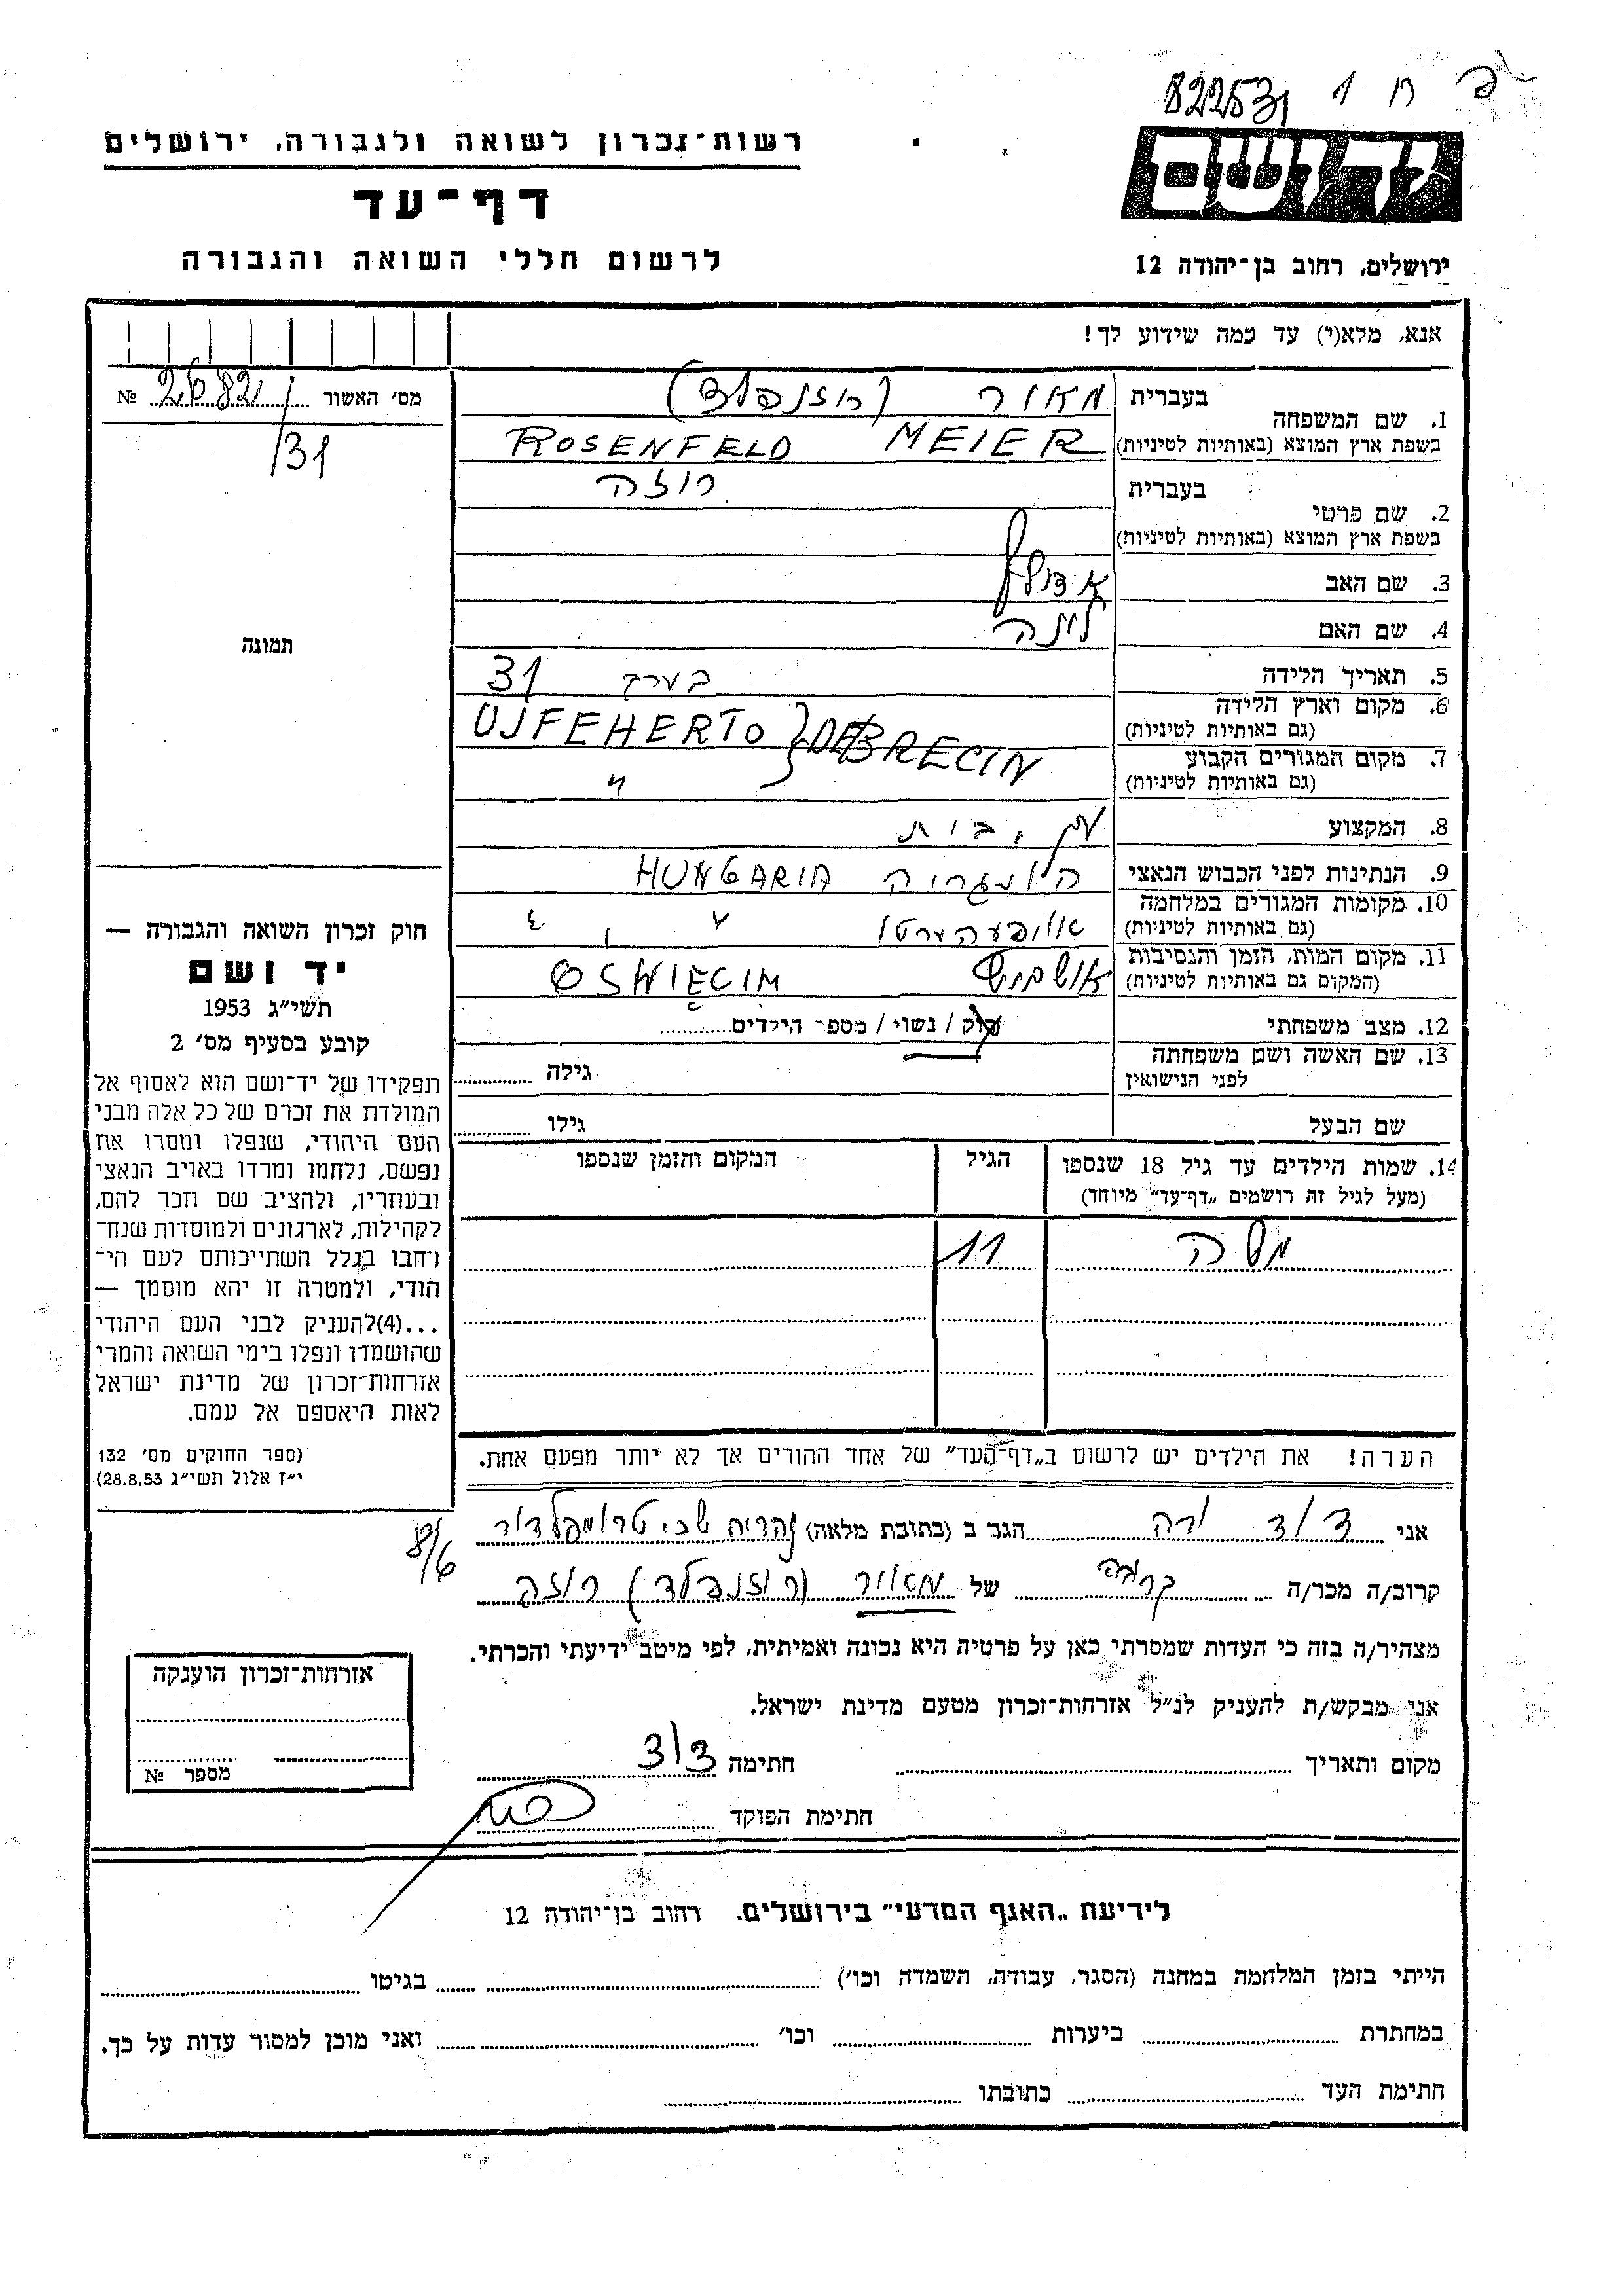 822531 1 ח פ
יד ושם
רשות־זכרון לשואה ולגבורה, ירושלים
דף־עד
לרשום חללי השואה והגבורה
ירושלים, רחוב בן־יהודה 12
אנא, מלא(י) עד כמה שידוע לך!
מס׳ האשור 2682 №
/31
תמונה
1. שם המשפחה בעברית מאור (רוזנפלד)
בשפת ארץ המוצא (באותיות לטיניות) ROSENFELD MEIER
2. שם פרטי בעברית רוזה
בשפת ארץ המוצא (באותיות לטיניות)
3. שם האב אדולף
4. שם האם
5. תאריך הלידה בערך 31
6. מקום וארץ הלידה UJFEHERTO } DEBRECIN
(גם באותיות לטיניות)
7. מקום המגורים הקבוע "
(גם באותיות לטיניות)
8. המקצוע עק. בית
9. הנתינות לפני הכבוש הנאצי הונגריה HUNGARIA
10. מקומות המגורים במלחמה
(גם באותיות לטיניות) אויפעהערטו
11. מקום המות, הזמן והנסיבות
(המקום גם באותיות לטיניות) אושביץ OSWIĘCIM
12. מצב משפחתי רוק / נשוי / מספר הילדים
13. שם האשה ושם משפחתה
לפני הנישואין גילה
שם הבעל גילו
14. שמות הילדים עד גיל 18 שנספו הגיל המקום והזמן שנספו
(מעל לגיל זה רושמים „דף־עד” מיוחד)
משה 11
הערה! את הילדים יש לרשום ב„דף־העד” של אחד ההורים אך לא יותר מפעם אחת.
חוק זכרון השואה והגבורה —
יד ושם
תשי״ג 1953
קובע בסעיף מס׳ 2
תפקידו של יד־ושם הוא לאסוף אל
המולדת את זכרם של כל אלה מבני
העם היהודי, שנפלו ומסרו את
נפשם, נלחמו ומרדו באויב הנאצי
ובעוזריו, ולהציב שם וזכר להם,
לקהילות, לארגונים ולמוסדות שנח־
רחבו בגלל השתייכותם לעם הי־
הודי, ולמטרה זו יהא מוסמך —
...(4)להעניק לבני העם היהודי
שהושמדו ונפלו בימי השואה והמרי
אזרחות־זכרון של מדינת ישראל
לאות היאספם אל עמם.
(ספר החוקים מס׳ 132
י״ז אלול תשי״ג 28.8.53)
אני דוד הגר ב (כתובת מלאה) נהריה שכ. טרומפלדור
8/6
קרוב/ה מכר/ה קרובה של מאור (רוזנפלד) רוזה
מצהיר/ה בזה כי העדות שמסרתי כאן על פרטיה היא נכונה ואמיתית, לפי מיטב ידיעתי והכרתי.
אני מבקש/ת להעניק לנ״ל אזרחות־זכרון מטעם מדינת ישראל.
מקום ותאריך חתימה דוד
חתימת הפוקד
אזרחות־זכרון הוענקה
מספר №
לידיעת „האגף המדעי” בירושלים. רחוב בן־יהודה 12
הייתי בזמן המלחמה במחנה (הסגר, עבודה, השמדה וכו׳) בגיטו
במחתרת ביערות וכו׳ ואני מוכן למסור עדות על כך.
חתימת העד כתובתו